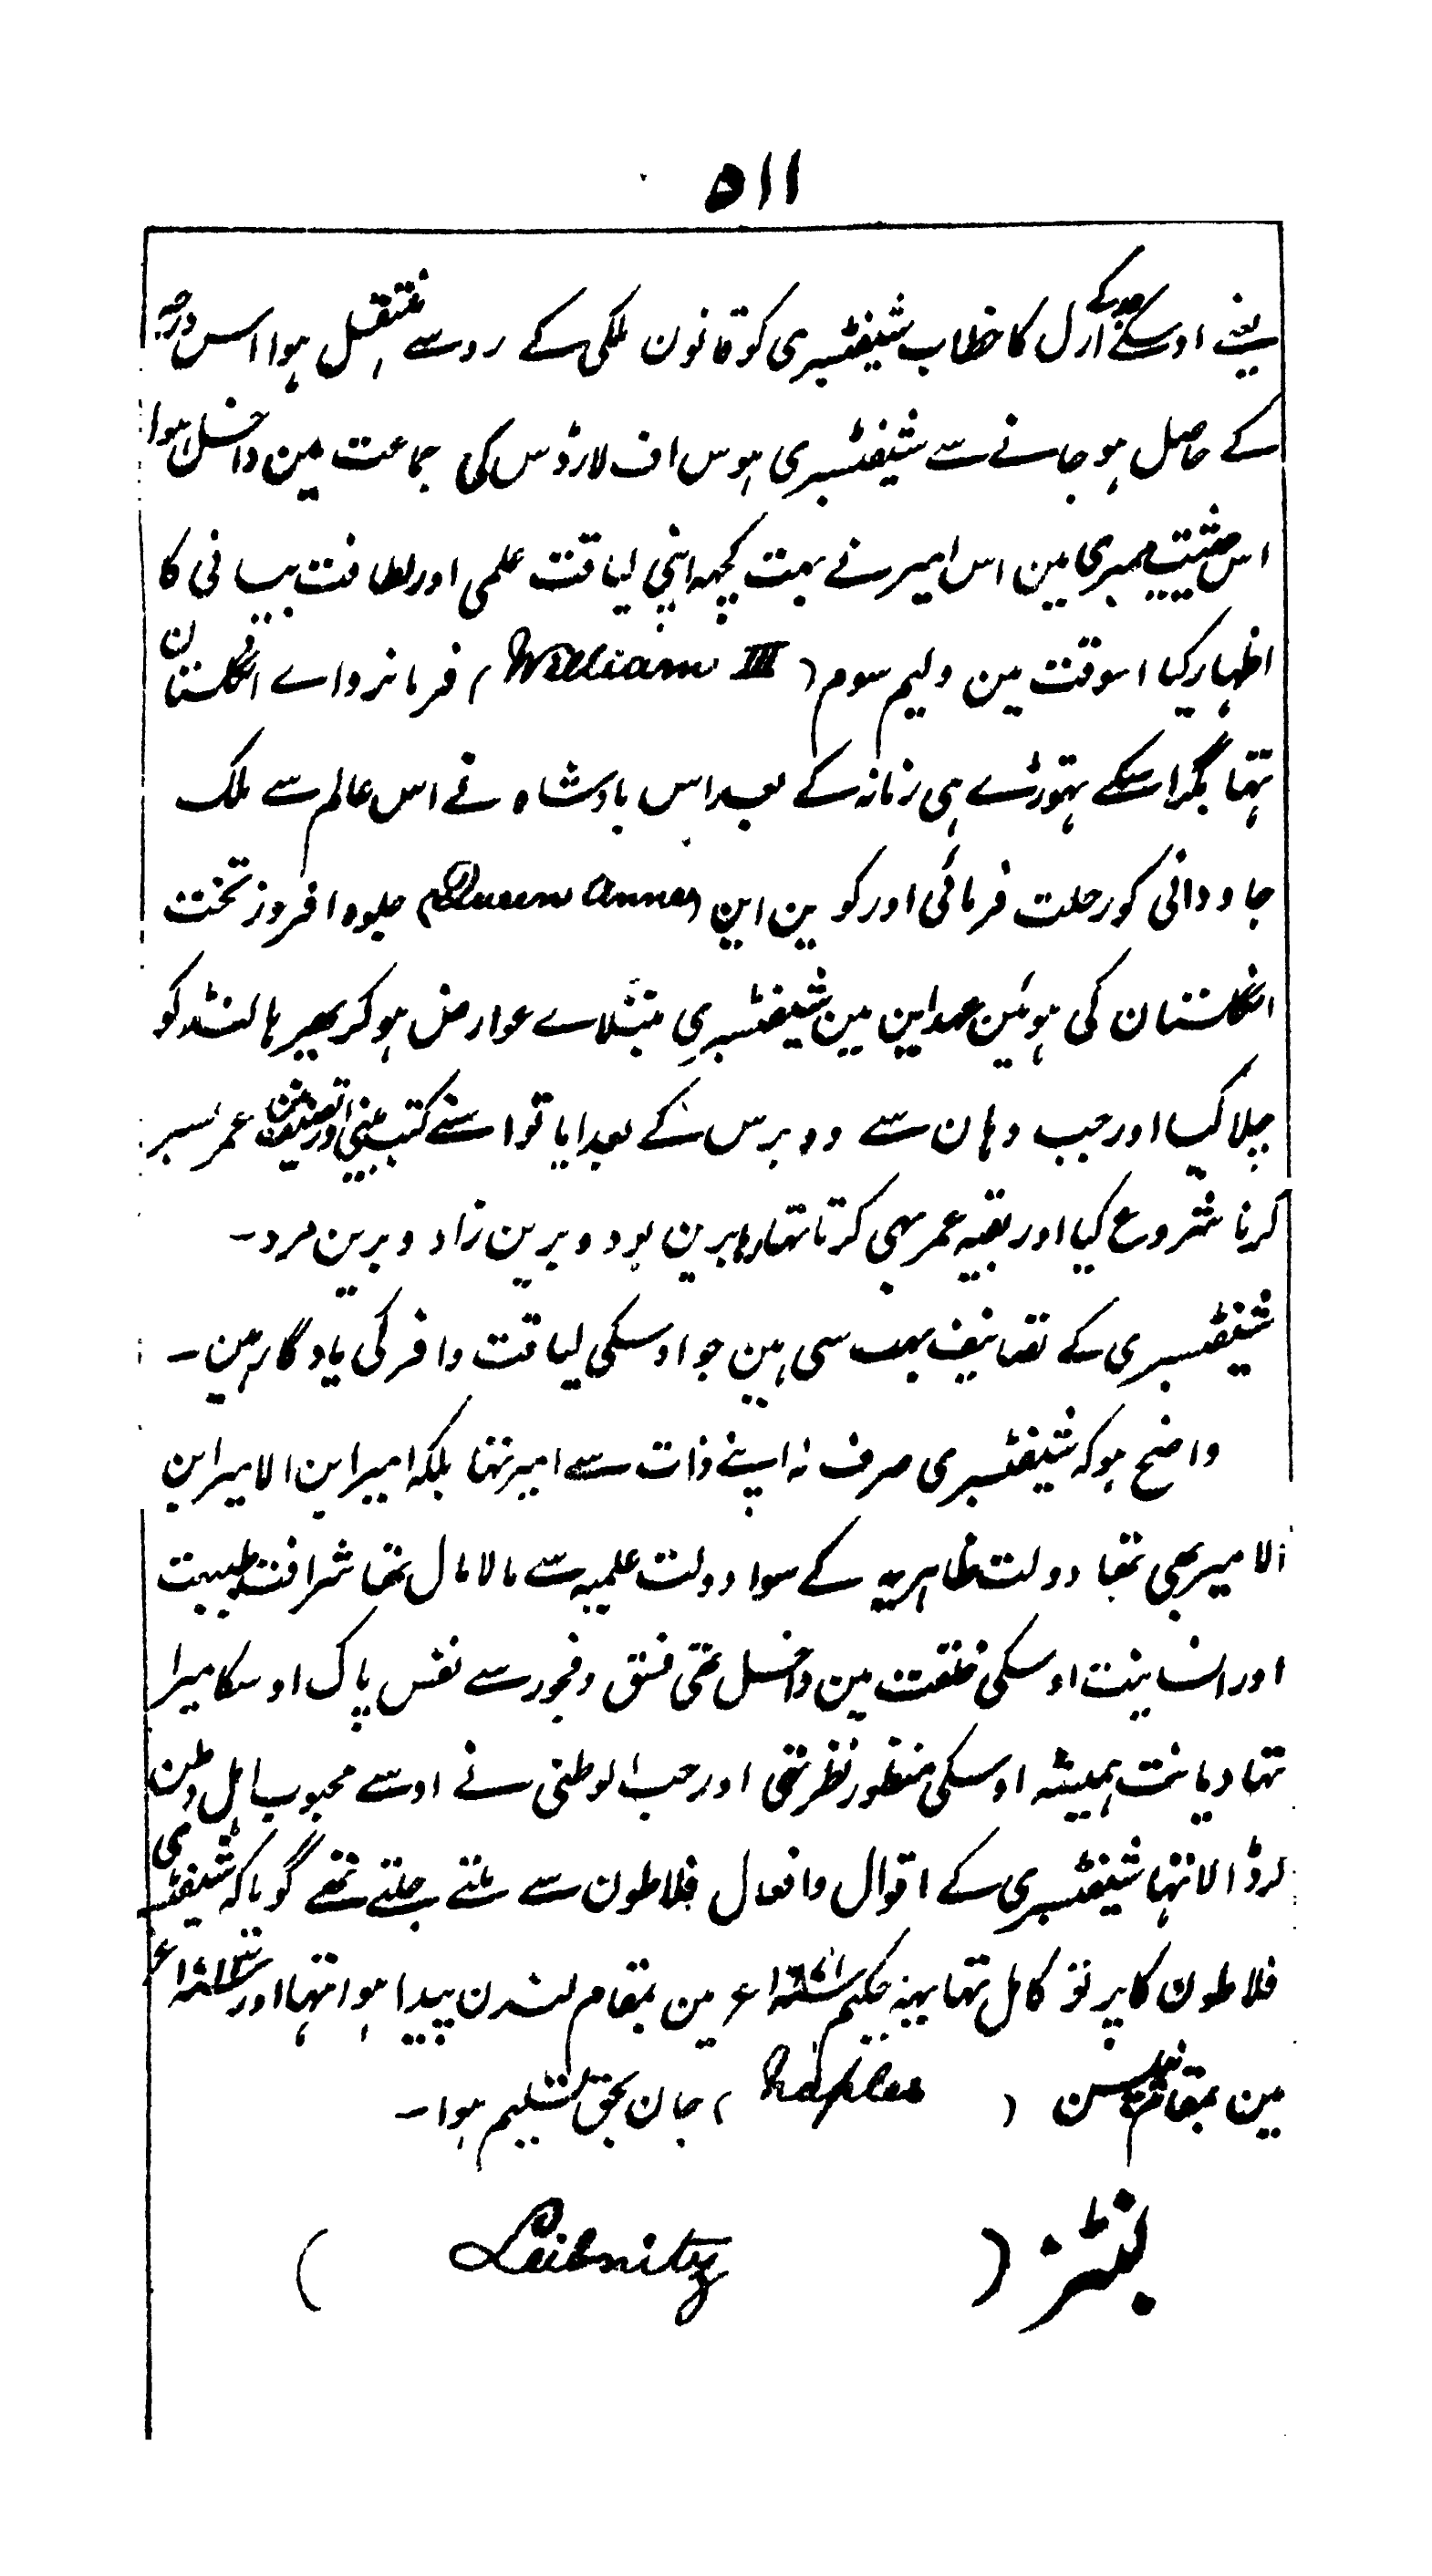 ۵۱۱
یعنے اوسکے مرنیکے ارل کا خطاب شیفٹسبری کو قانون ملکی کے رو سے منتقل ہوا اس درجہ
کے حاصل ہو جانے سے شیفٹسبری ہوس اف لارڈس کی جماعت مین داخل ہوا
اس حیثیت ممبری مین اس امیر نے بہت کچہہ اپنی لیاقت علمی اور لطافت بیانی کا
اظہار کیا اسوقت مین ولیم سوم (William III) فرمانرواے انگلستان
تہا مگر اسکے تہوڑے ہی زمانہ کے بعد اس بادشاہ نے اس عالم سے ملک
جاودانی کو رحلت فرمائی اور کوین این (Queen Anne) جلوہ افروز تخت
انگلستان کی ہوئین عہد این مین شیفٹسبری مبتلاے عوارض ہو کر پھر ہالنڈ کو
چلا گیا اور جب وہان سے دو برس کے بعد ایا تو اسنے کتب بینی اور تصنیف مین عمر بسر
کرنا شروع کیا اور بقیہ عمر یہی کرتا تہا رہا برین بود و برین زاد و برین مرد ۔
شیفٹسبری کے تصانیف بہت سی ہین جو اوسکی لیاقت وافر کی یادگار ہین ۔
واضح ہو کہ شیفٹسبری صرف نہ اپنے ذات سے امیر تہا بلکہ امیر ابن الامیر ابن
الامیر بھی تھا دولت ظاہریہ کے سوا دولت علمیہ سے مالامال تھا شرافت طبیعت
اور انسانیت اوسکی خلقت مین داخل تھی فسق و فجور سے نفس پاک اوسکا مبرا
تہا دیانت ہمیشہ اوسکی منظور نظر تھی اور حب الوطنی نے اوسے محبوب اہل وطن
کرڈالا تہا شیفٹسبری کے اقوال و افعال فلاطون سے ملتے جلتے تھے گویا کہ شیفٹسبری
فلاطون کا پرتو کامل تہا یہہ حکیم ۱۶۷۱ء مین بمقام لندن پیدا ہوا تہا اور
مین بمقام نیپلس (Naples) جان بحق تسلیم ہوا ۔
لبنٹز (Leibnitz)